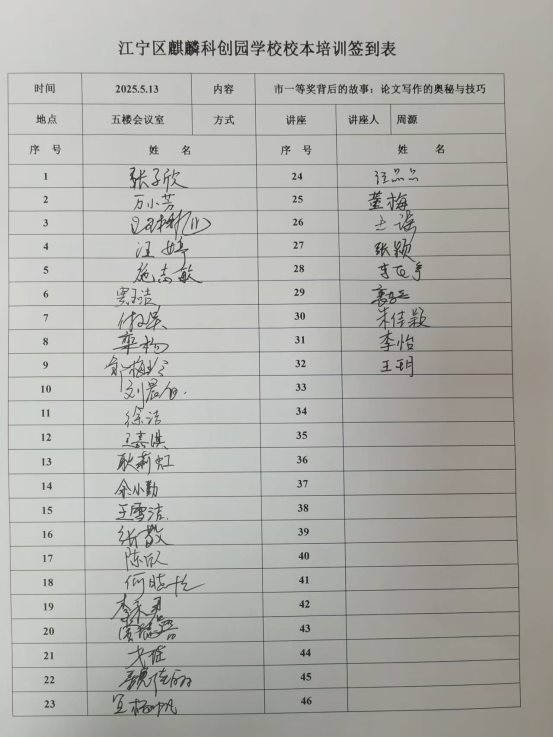 江宁区麒麟科创园学校校本培训签到表
时间 2025.5.13 内容 市一等奖背后的故事：论文写作的奥秘与技巧
地点 五楼会议室 方式 讲座 讲座人 周源
序 号 姓 名 序 号 姓 名
1 张子欣 24 汪品品
2 万小芳 25 董梅
3 26 王谣
4 汪婷 27 张颖
5 施志敏 28
6 贾洁 29
7 30 朱佳颖
8 31 李怡
9 32 王玥
10 刘晨 33
11 徐洁 34
12 王嘉淇 35
13 耿莉虹 36
14 余小勤 37
15 王雪洁 38
16 张敬 39
17 陈欣 40
18 何晓 41
19 李 42
20 43
21 戈 44
22 魏佳丽 45
23 46